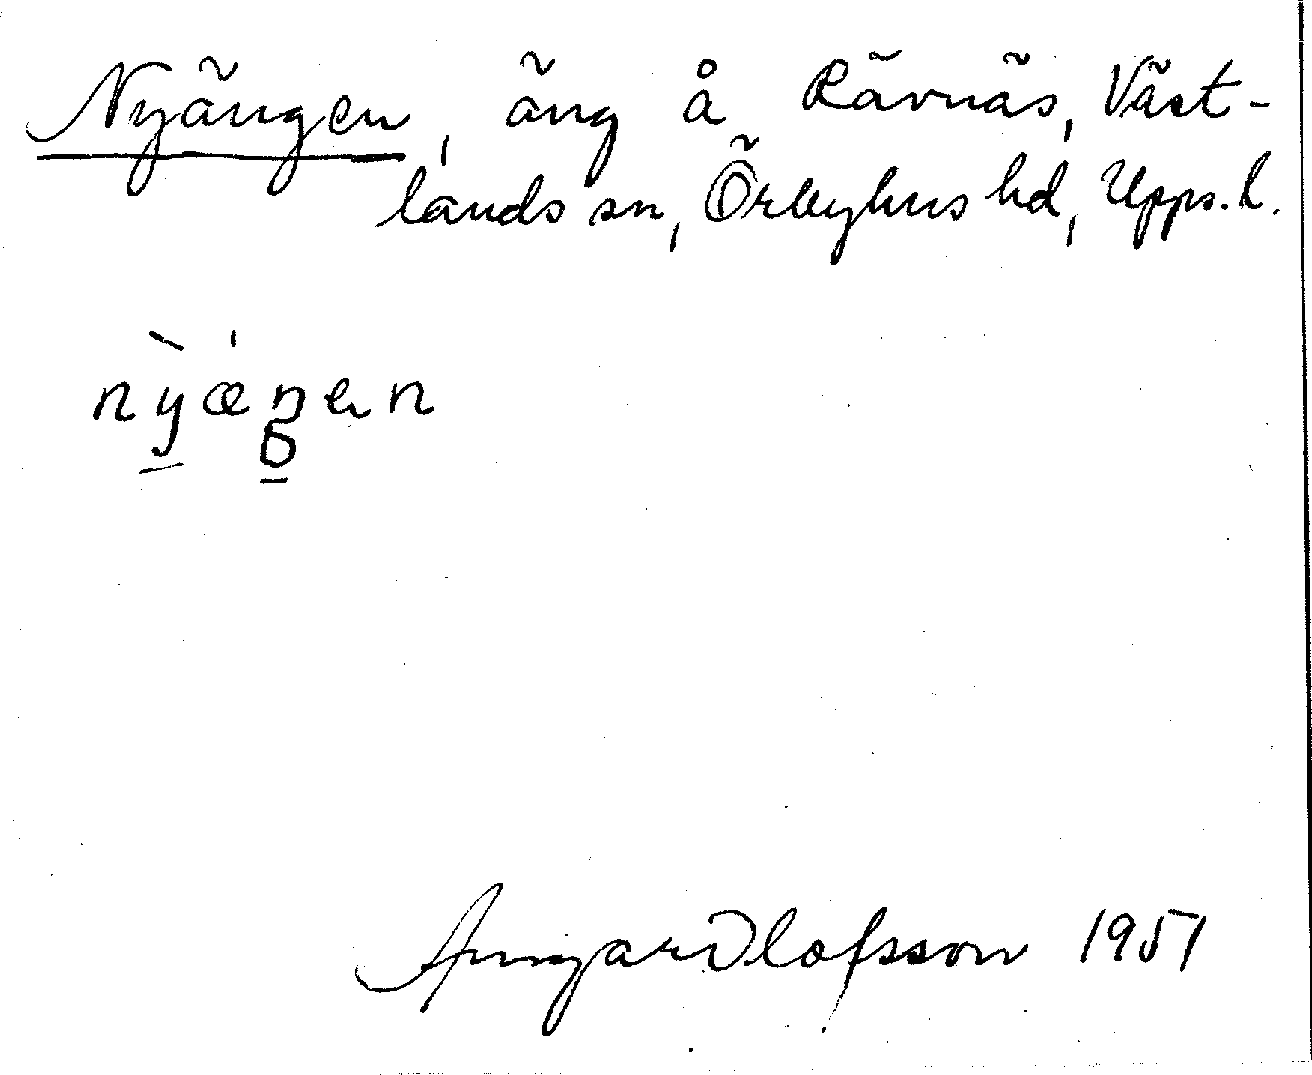 Nyängen, äng å Rävnäs, Väst-
lands sn, Örbyhus hd, Upps. l.
nỳæŋen
Olofsson 1951